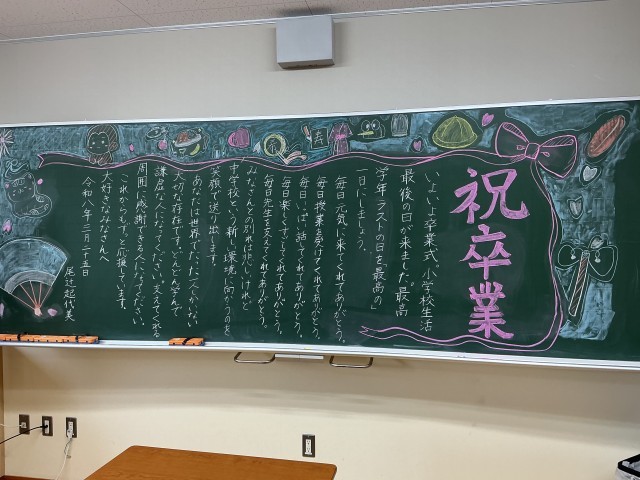 祝卒業
いよいよ卒業式。小学校生活
最後の日が来ました。最高
学年、ラストの日を、最高の
一日にしましょう。
毎日元気に来てくれてありがとう。
毎日授業を受けてくれてありがとう。
毎日いっぱい話してくれてありがとう。
毎日楽しくすごしてくれてありがとう。
毎日先生を支えてくれてありがとう。
みなさんとの別れは悲しいけれど
中学校という新しい環境へ向かうのを、
笑顔で送り出します。
あなたは世界でたった一人しかいない
大切な存在です。どんどん学んで
謙虚な人になってください。支えてくれる
周囲に感謝できる人になってください。
これからも、ずっと応援しています。
大好きなみなさんへ
令和八年三月二十五日